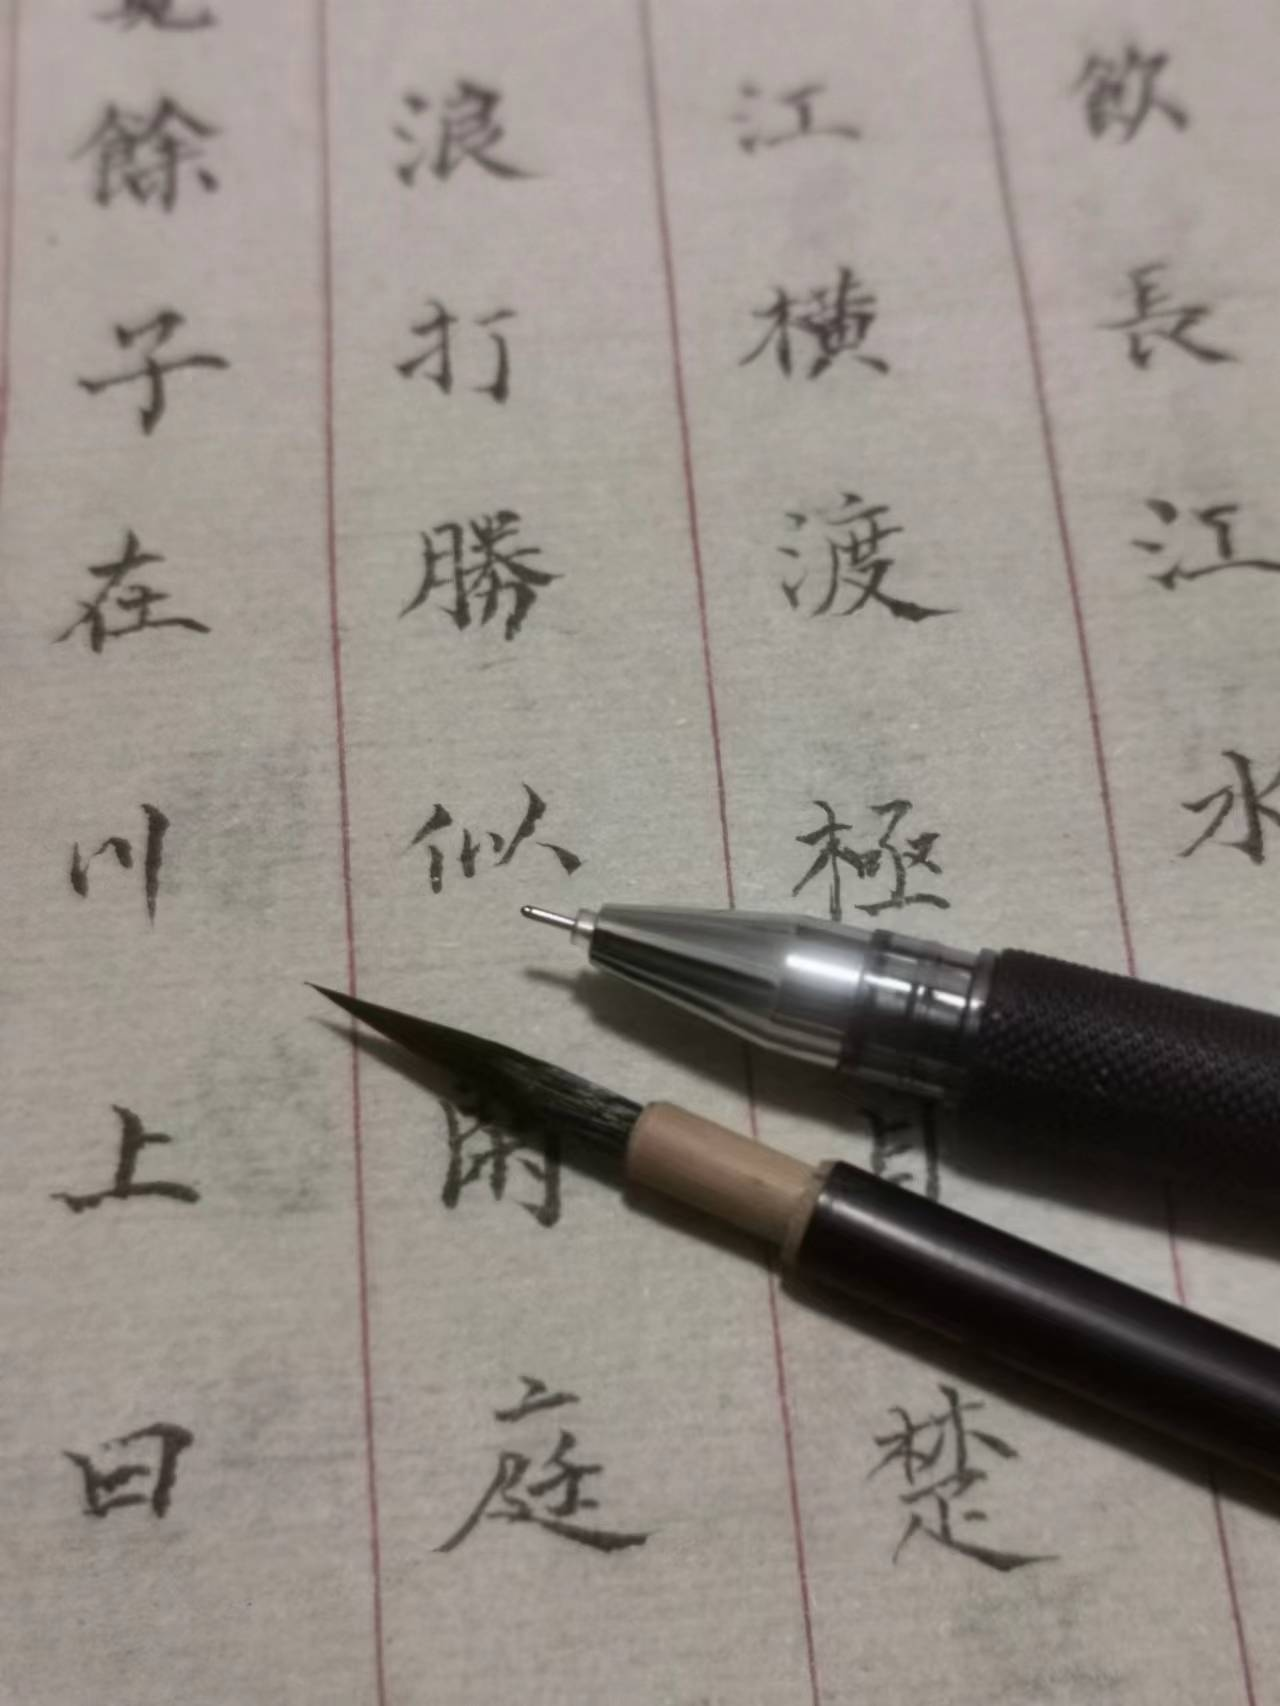 飲長江水
江横渡極目楚
浪打勝似閑庭
餘子在川上曰